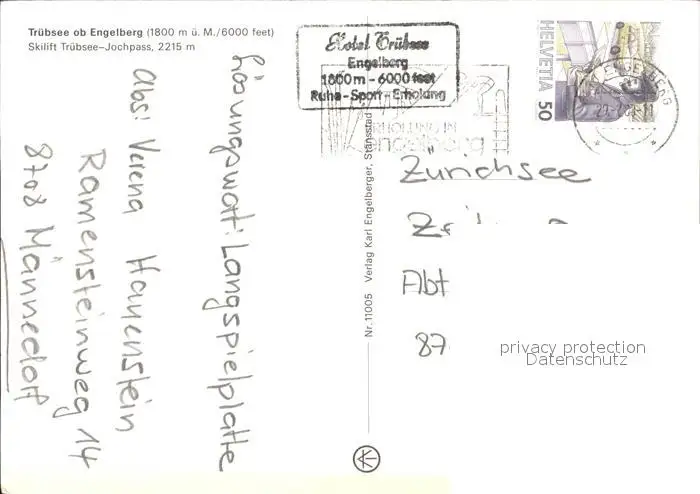 Trübsee ob Engelberg (1800 m ü. M./6000 feet)
Skilift Trübsee–Jochpass, 2215 m
Hotel Trübsee
Engelberg
1800m - 6000 feet
Ruhe - Sport - Erholung
ERHOLUNG IN
Engelberg
HELVETIA 50
ENGELBERG
Lösungswort: Langspielplatte
Abs: Verena Hauenstein
Ramensteinweg 14
8708 Männedorf
Nr. 11005 Verlag Karl Engelberger, Stansstad
Zürichsee
Abt
87
privacy protection
Datenschutz